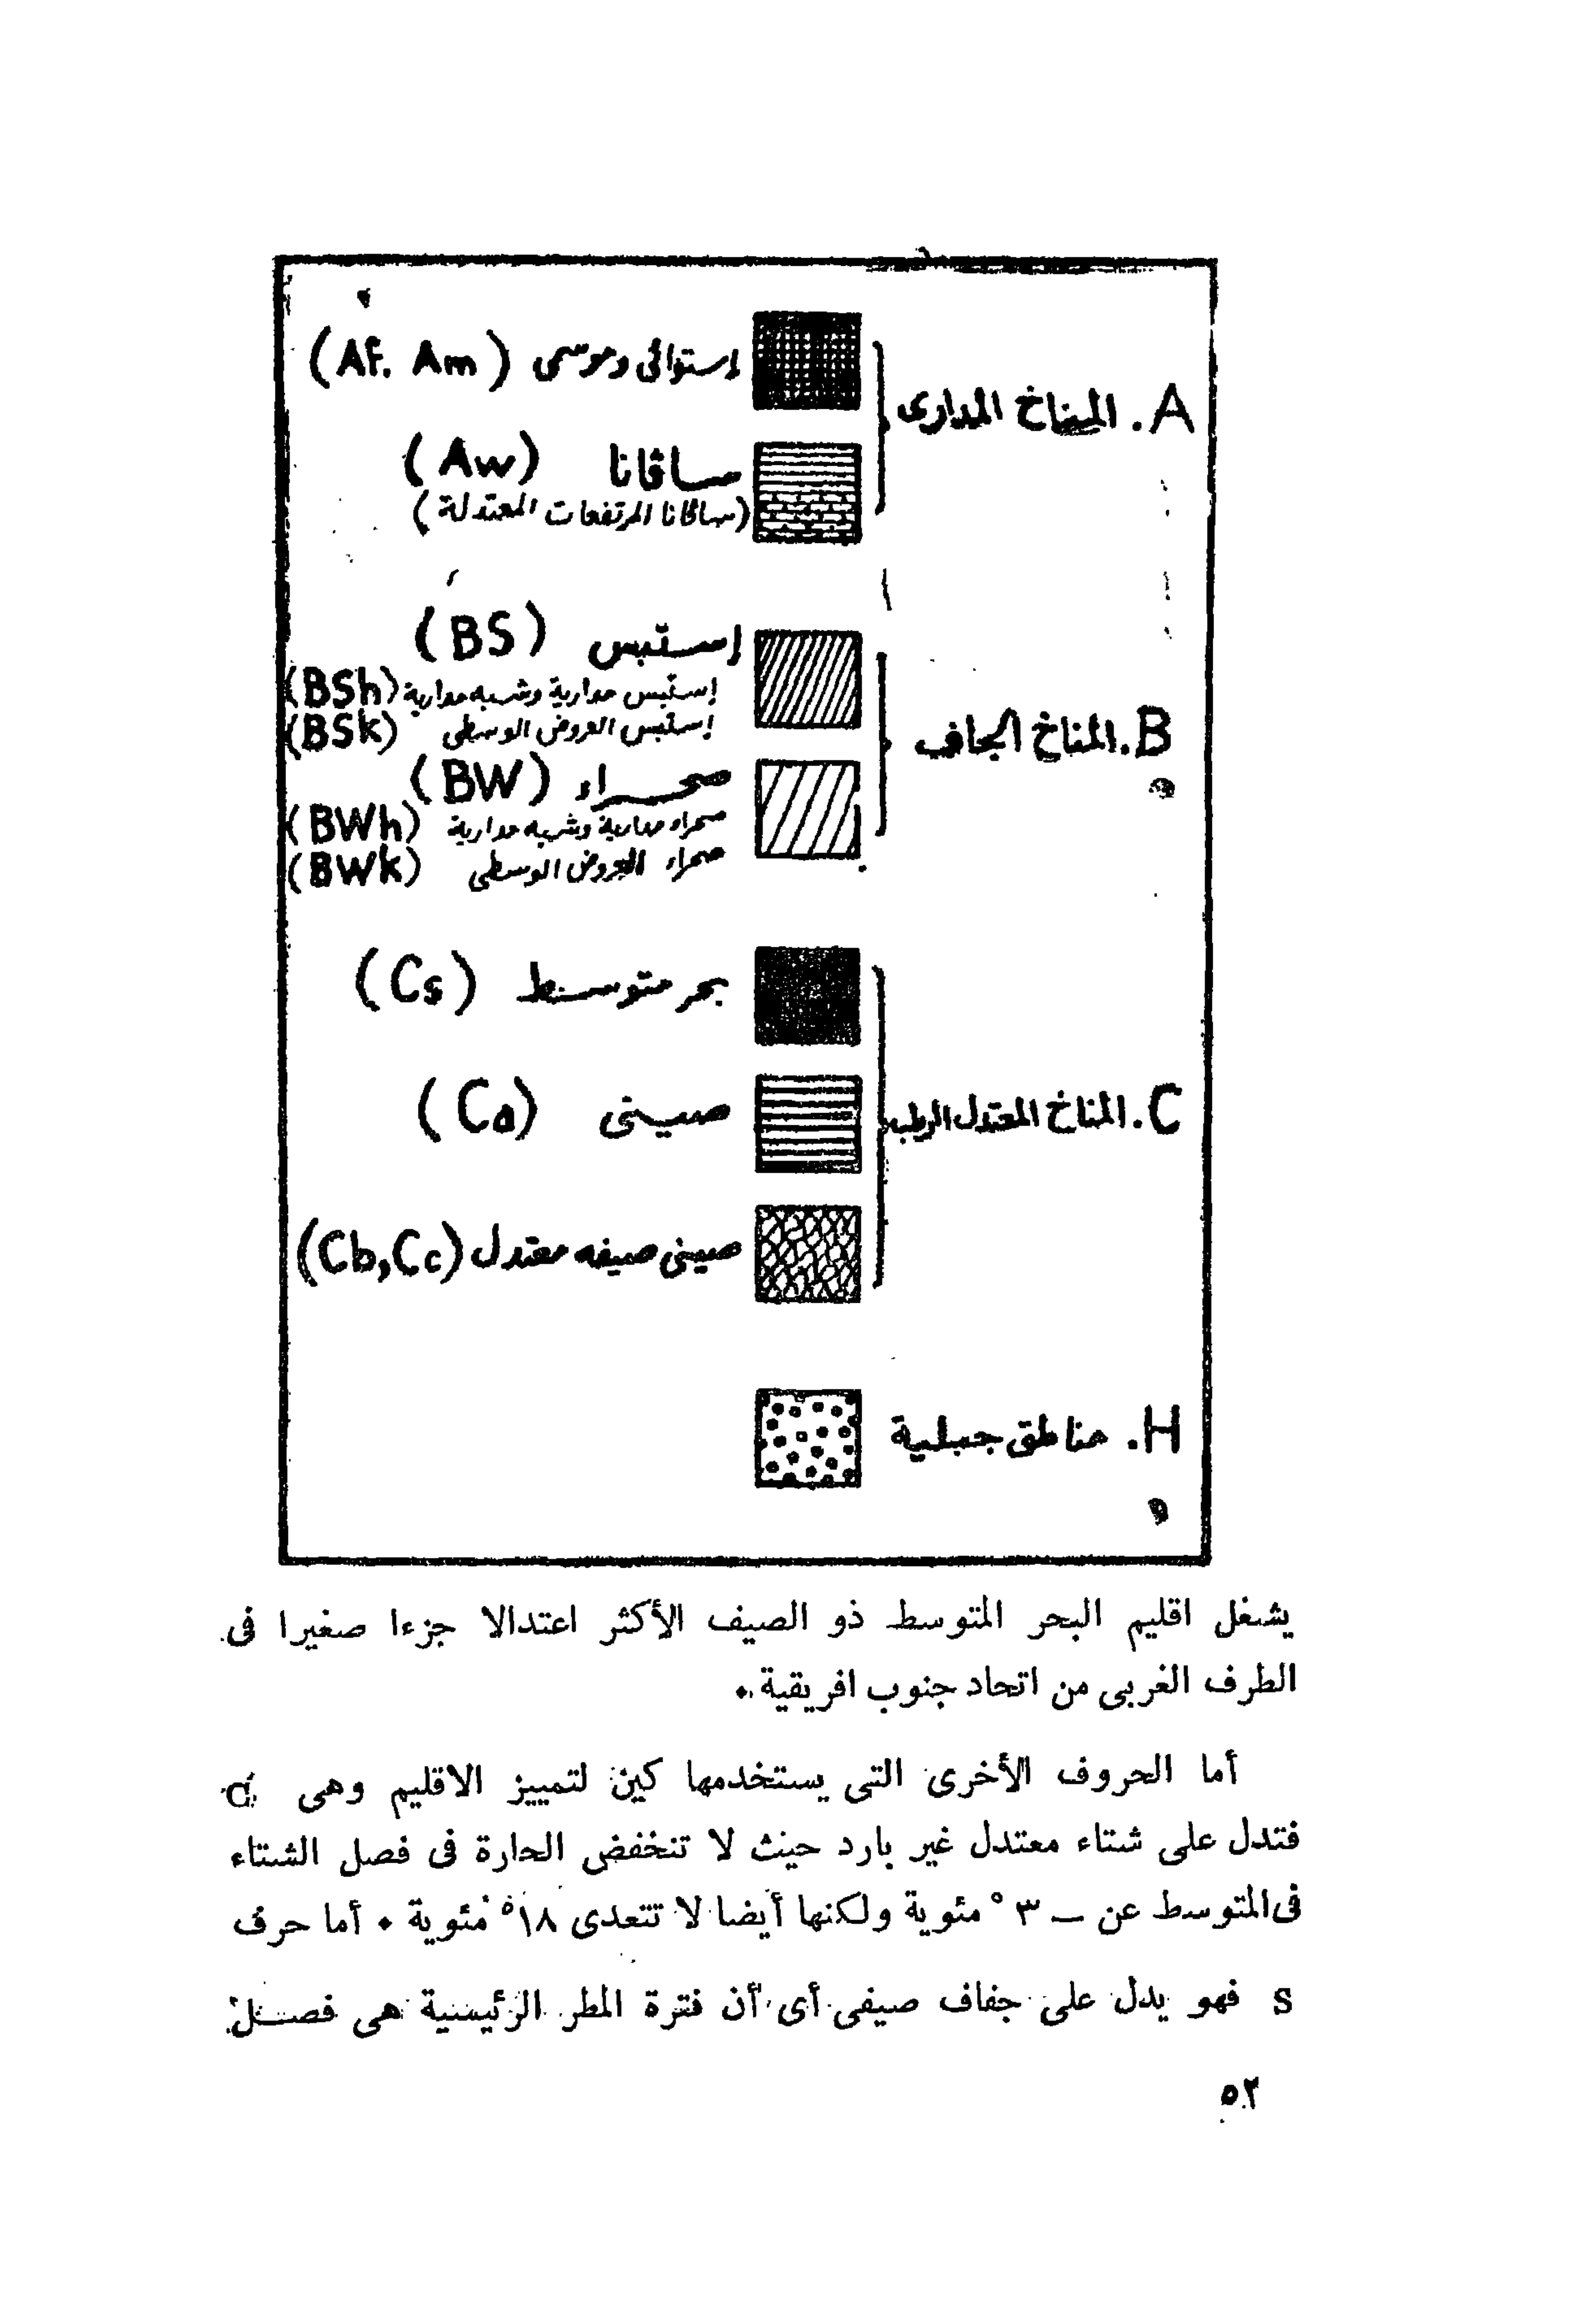 A. المناخ المدارى
إستوائى وموسمى (Af. Am)
ساڤانا (Aw)
(ساڤانا المرتفعات المعتدلة)
B. المناخ الجاف
إستبس (BS)
إستبس مدارية وشبه مدارية (BSh)
إستبس العروض الوسطى (BSk)
صحراء (BW)
صحراء مدارية وشبه مدارية (BWh)
صحراء العروض الوسطى (BWk)
C. المناخ المعتدل الرطب
بحر متوسط (Cs)
صينى (Ca)
صينى صيفه معتدل (Cb,Cc)
H. مناطق جبلية
يشغل اقليم البحر المتوسط ذو الصيف الأكثر اعتدالا جزءا صغيرا فى
الطرف الغربى من اتحاد جنوب افريقية .
أما الحروف الأخرى التى يستخدمها كين لتمييز الاقليم وهى
فتدل على شتاء معتدل غير بارد حيث لا تنخفض الحارة فى فصل الشتاء
فى المتوسط عن — ٣° مئوية ولكنها أيضا لا تتعدى ١٨° مئوية . أما حرف
s فهو يدل على جفاف صيفى أى أن فترة المطر الرئيسية هى فصل
٥٢